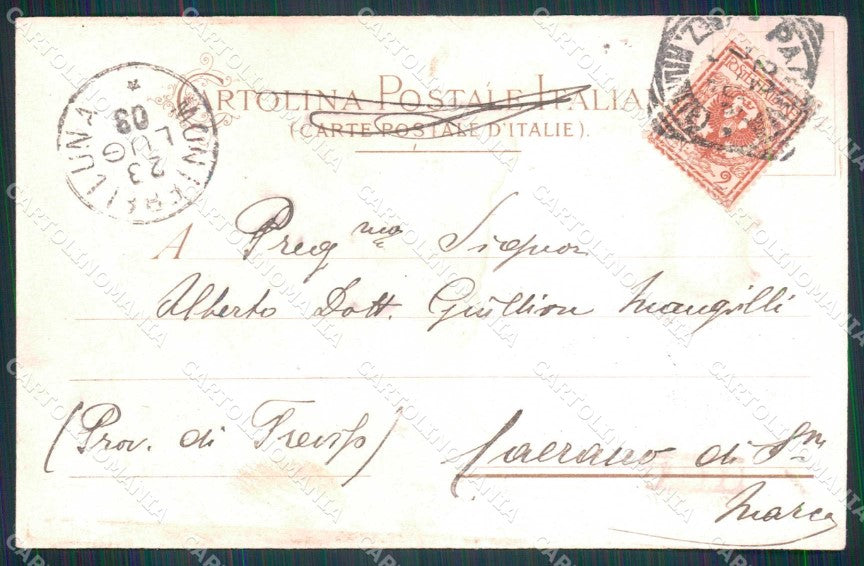 CARTOLINA POSTALE ITALIANA
(CARTE POSTALE D'ITALIE).
MONTEBELLUNA
23
LUG
03
POSTE ITALIANE
2
A Preg.ma Signor
Alberto Dott. Guillion Mangilli
(Prov. di Treviso)
Caerano di Sn
Marco
CARTOLINOMANIA